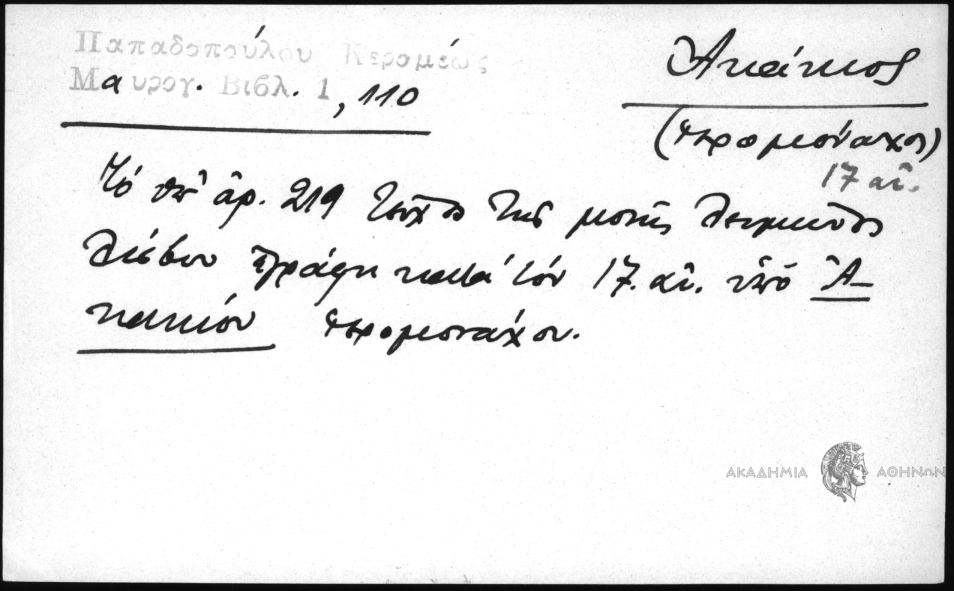 Παπαδοπούλου Κεραμέως
Μαυρογ. Βιβλ. 1, 110
Ἀκάκιος
(ἱερομόναχος)
17 αἰ.
Τό ὑπ' ἀρ. 219 τεῦχος τῆς μονῆς Λειμῶνος
Λέσβου ἐγράφη κατά τόν 17. αἰ. ὑπό Ἀ-
κακίου ἱερομονάχου.
ΑΚΑΔΗΜΙΑ ΑΘΗΝΩΝ